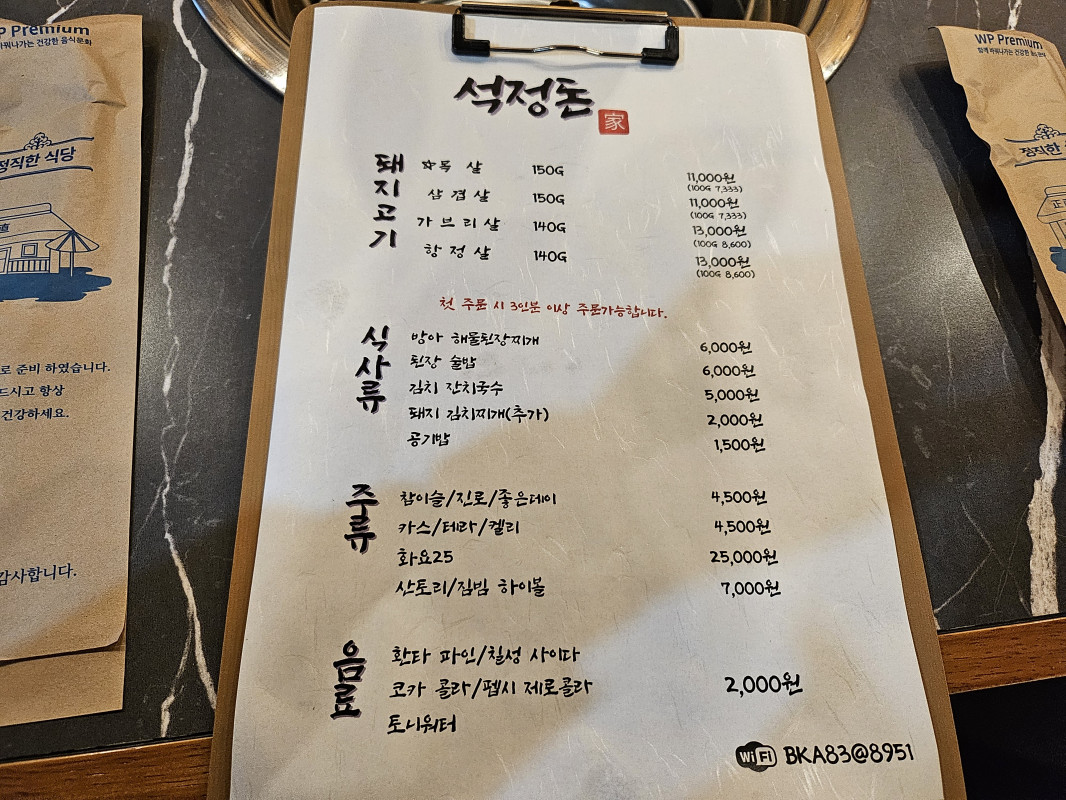 석정돈
家
돼지고기
목 살 150G 11,000원
(100G 7,333)
삼 겹 살 150G 11,000원
(100G 7,333)
가 브 리 살 140G 13,000원
(100G 8,600)
항 정 살 140G 13,000원
(100G 8,600)
첫 주문 시 3인분 이상 주문가능합니다.
식사류
방아 해물된장찌개 6,000원
된장 술밥 6,000원
김치 잔치국수 5,000원
돼지 김치찌개(추가) 2,000원
공기밥 1,500원
주류
참이슬/진로/좋은데이 4,500원
카스/테라/켈리 4,500원
화요25 25,000원
산토리/짐빔 하이볼 7,000원
음료
환타 파인/칠성 사이다
코카 콜라/펩시 제로콜라 2,000원
토니워터
WiFi BKA83@8951
WP Premium
바꿔나가는 건강한 음식문화
정직한 식당
로 준비 하였습니다.
드시고 항상
건강하세요.
감사합니다.
WP Premium
함께 바꿔나가는 건강한 음식문화
정직한